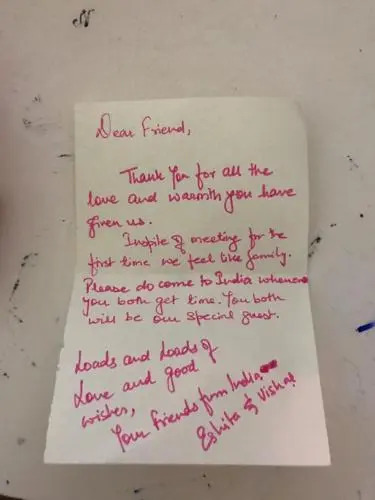 Dear Friend,
Thank You for all the
love and warmth you have
given us.
Inspite of meeting for the
first time we feel like family.
Please do come to India whenever
you both get time. You both
will be our special guest.
Loads and Loads of
Love and good
wishes,
Your friends from India
Eshita & Vishal